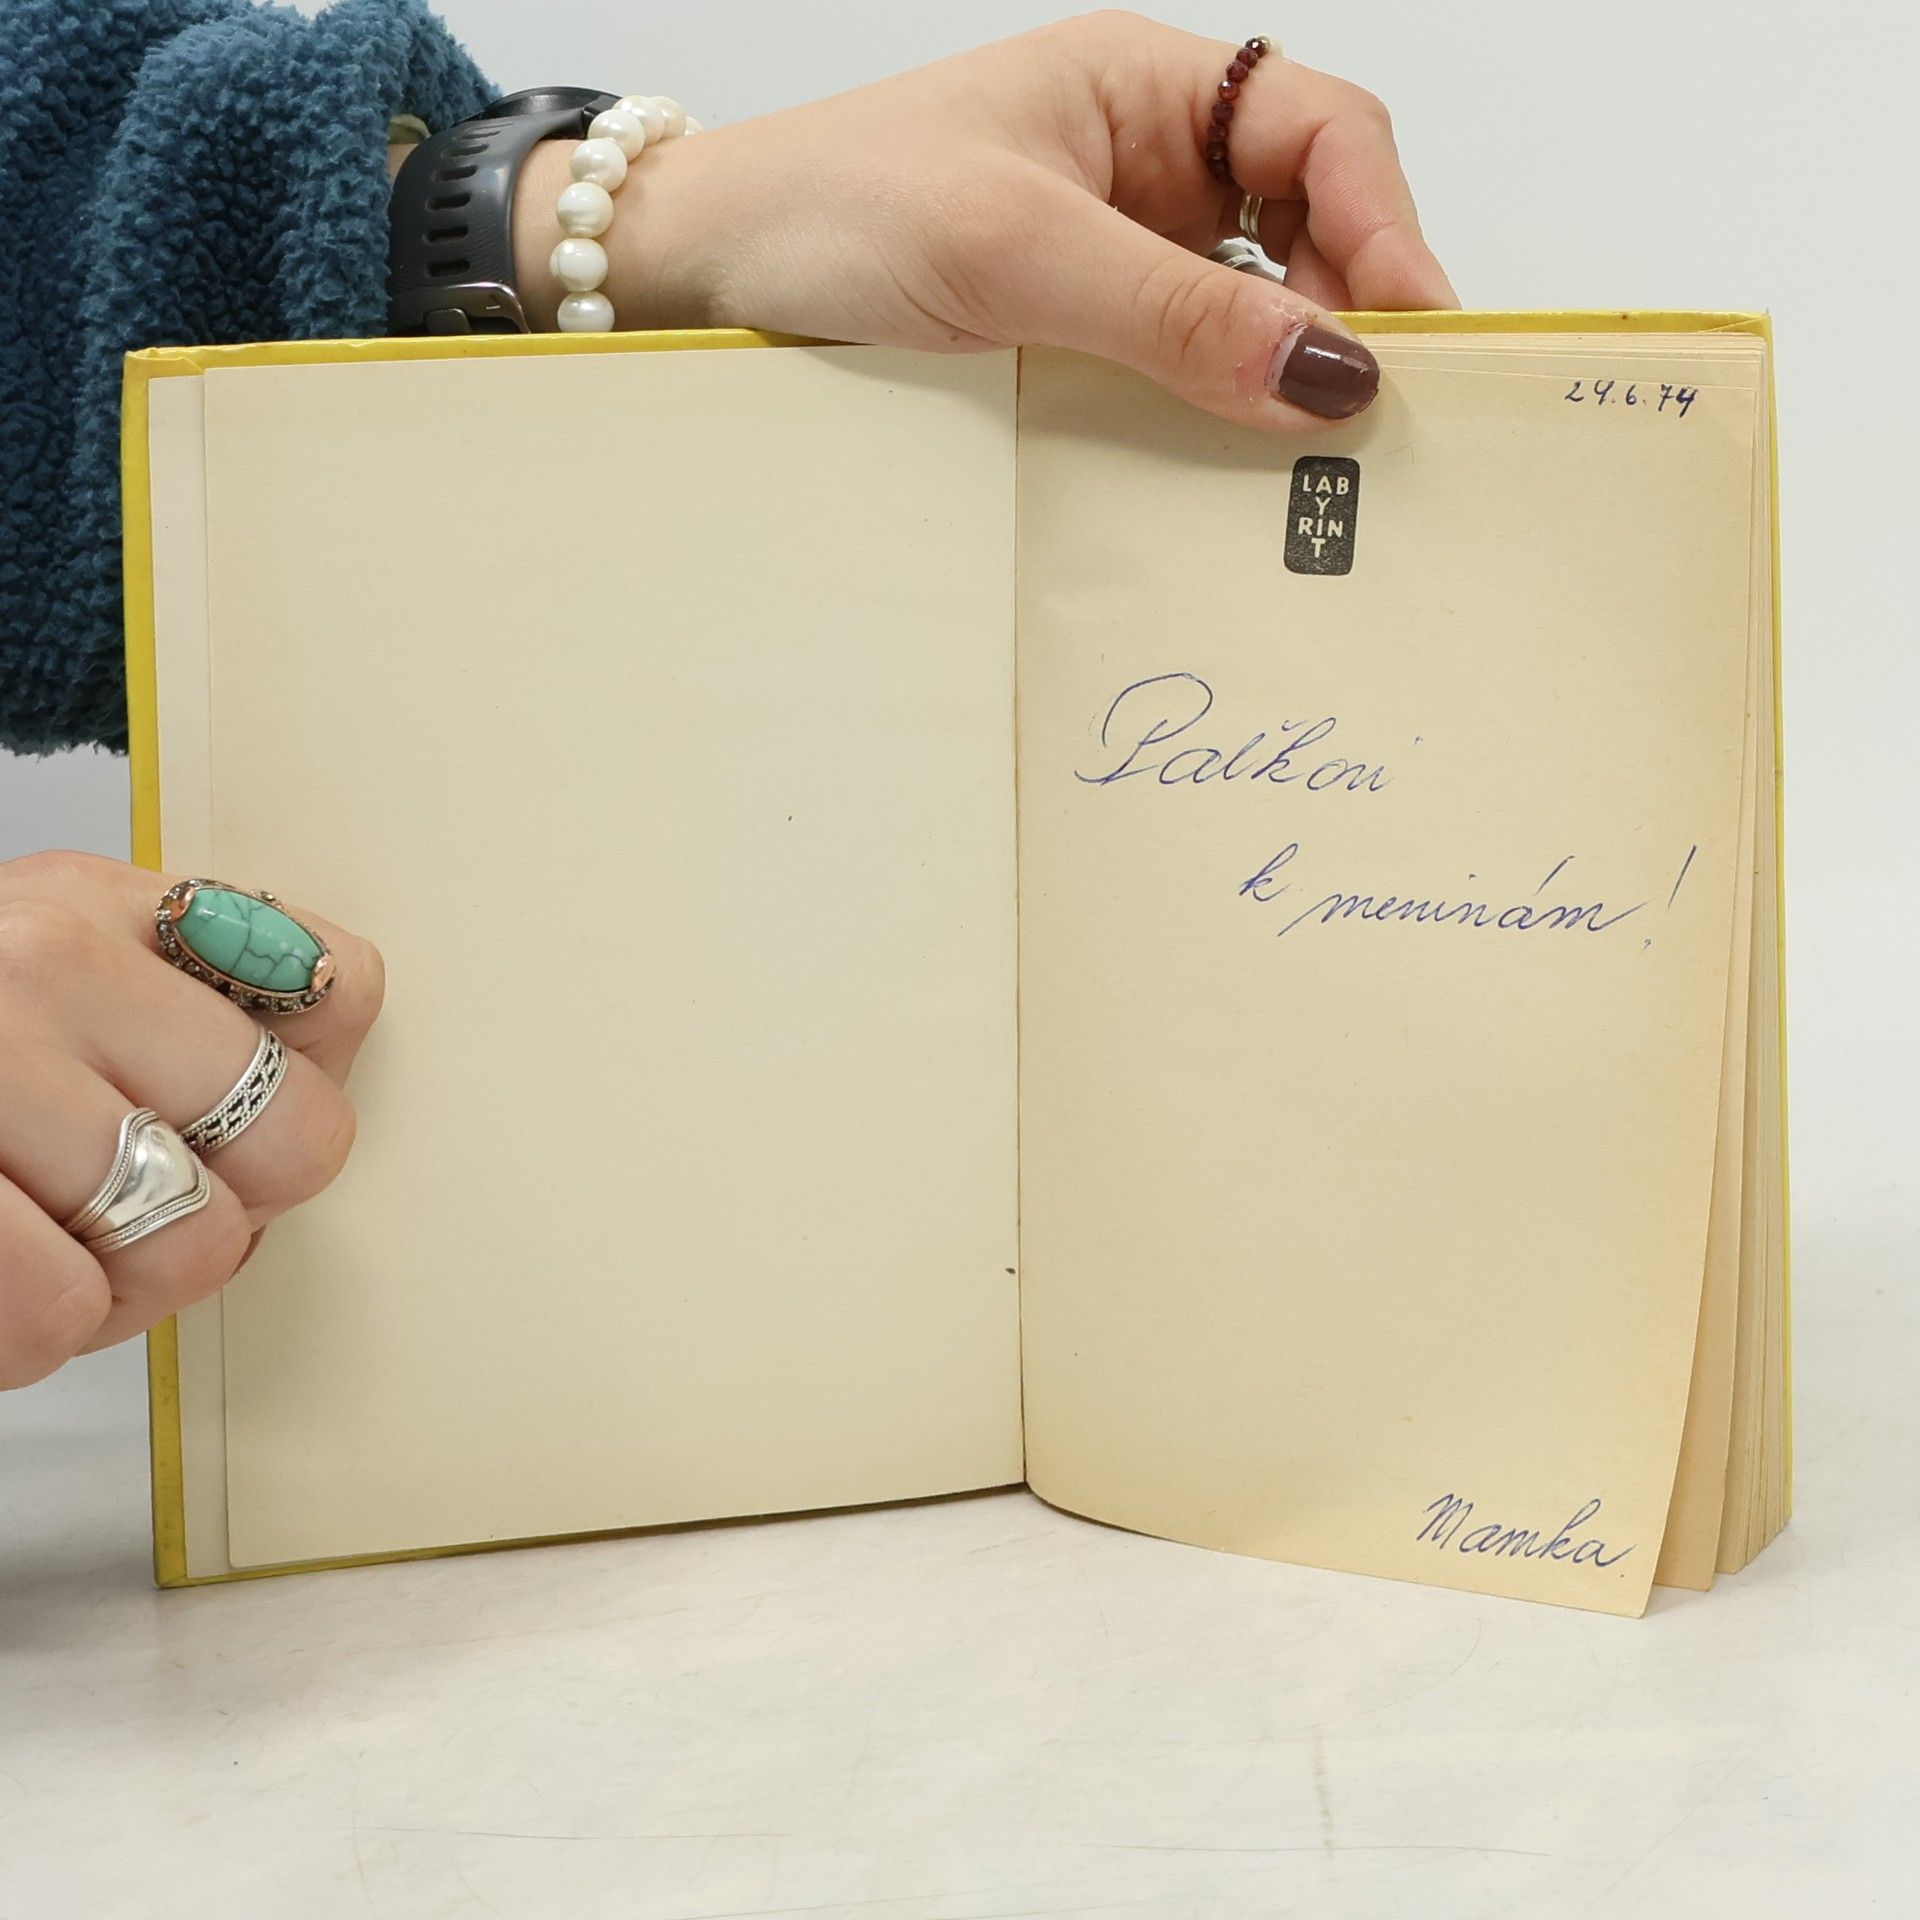 29.6.74
LAB
Y
RIN
T
Paľkovi
k meninám!
Mamka